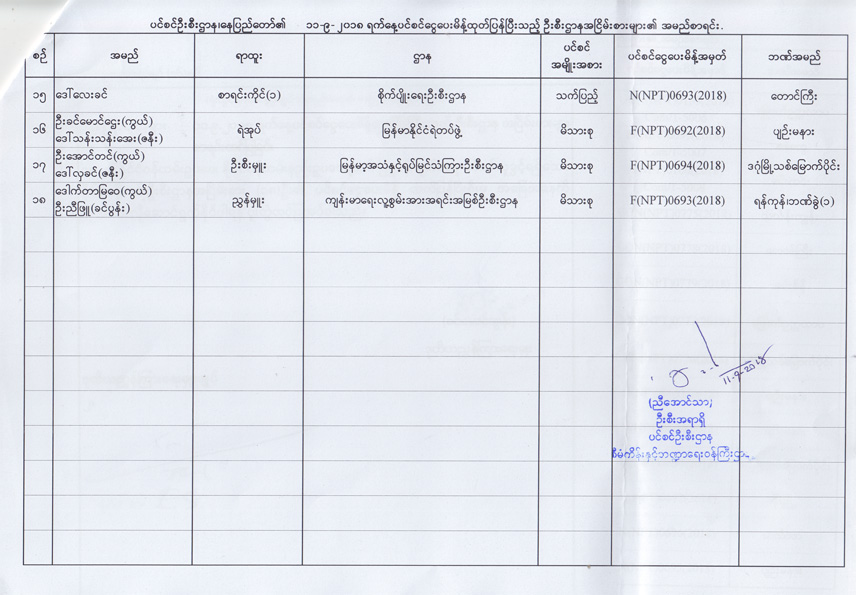 ပင်စင်ဦးစီးဌာန၊နေပြည်တော်၏ ၁၁-၉-၂၀၁၈ ရက်နေ့ပင်စင်ငွေပေးမိန့်ထုတ်ပြန်ပြီးသည့် ဦးစီးဌာနအငြိမ်းစားများ၏ အမည်စာရင်း.
စဉ် အမည် ရာထူး ဌာန ပင်စင် အမျိုးအစား ပင်စင်ငွေပေးမိန့်အမှတ် ဘဏ်အမည်
၁၅ ဒေါ်လေးခင် စာရင်းကိုင်(၁) စိုက်ပျိုးရေးဦးစီးဌာန သက်ပြည့် N(NPT)0693(2018) တောင်ကြီး
၁၆ ဦးခင်မောင်ဌွေး(ကွယ်) ရဲအုပ် မြန်မာနိုင်ငံရဲတပ်ဖွဲ့ မိသားစု F(NPT)0692(2018) ပျဉ်းမနား
ဒေါ်သန်းသန်းအေး(ဇနီး)
၁၇ ဦးအောင်တင်(ကွယ်) ဦးစီးမှူး မြန်မာ့အသံနှင့်ရုပ်မြင်သံကြားဦးစီးဌာန မိသားစု F(NPT)0694(2018) ဒဂုံမြို့သစ်မြောက်ပိုင်း
ဒေါ်လှခင်(ဇနီး)
၁၈ ဒေါက်တာမြဝေ(ကွယ်) ညွှန်မှူး ကျန်းမာရေးလူ့စွမ်းအားအရင်းအမြစ်ဦးစီးဌာန မိသားစု F(NPT)0693(2018) ရန်ကုန်၊ဘဏ်ခွဲ(၁)
ဦးညီဖြူ(ခင်ပွန်း)
11-9-2018
(ညီအောင်သာ)
ဦးစီးအရာရှိ
ပင်စင်ဦးစီးဌာန
စီမံကိန်းနှင့်ဘဏ္ဍာရေးဝန်ကြီးဌာ